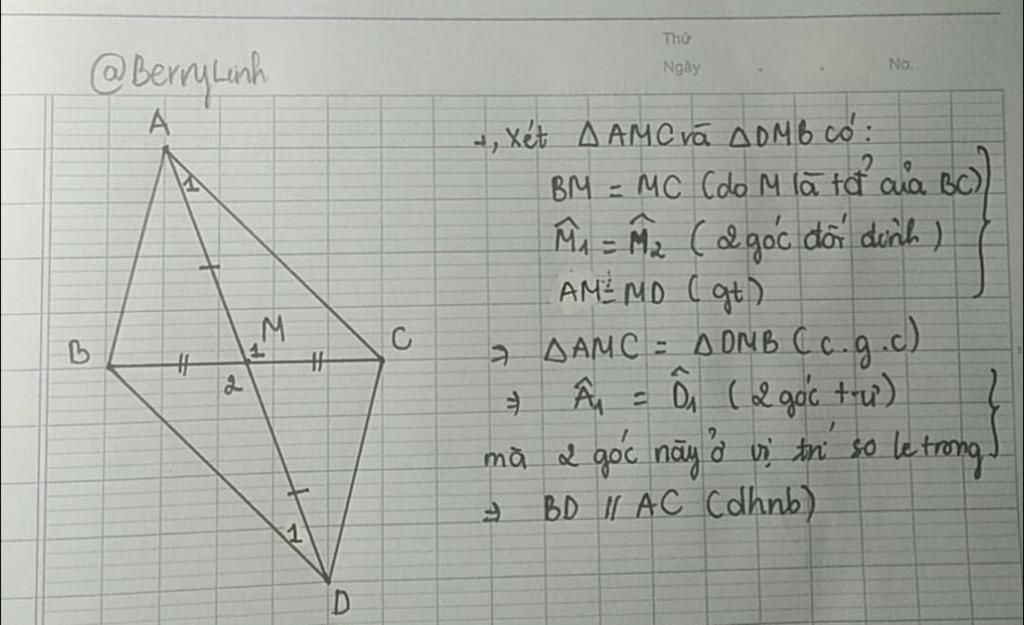 Thứ
Ngày . . No.
@BerryLinh
A
1
B
M
1
2
C
1
D
+, Xét △AMC và △DMB có:
BM = MC (do M là tđ' của BC)
M̂₁ = M̂₂ (2 góc đối đỉnh)
AM = MD (gt)
⇒ △AMC = △DMB (c.g.c)
⇒ Â₁ = D̂₁ (2 góc t-ư)
mà 2 góc này ở vị trí so le trong
⇒ BD // AC (dhnb)